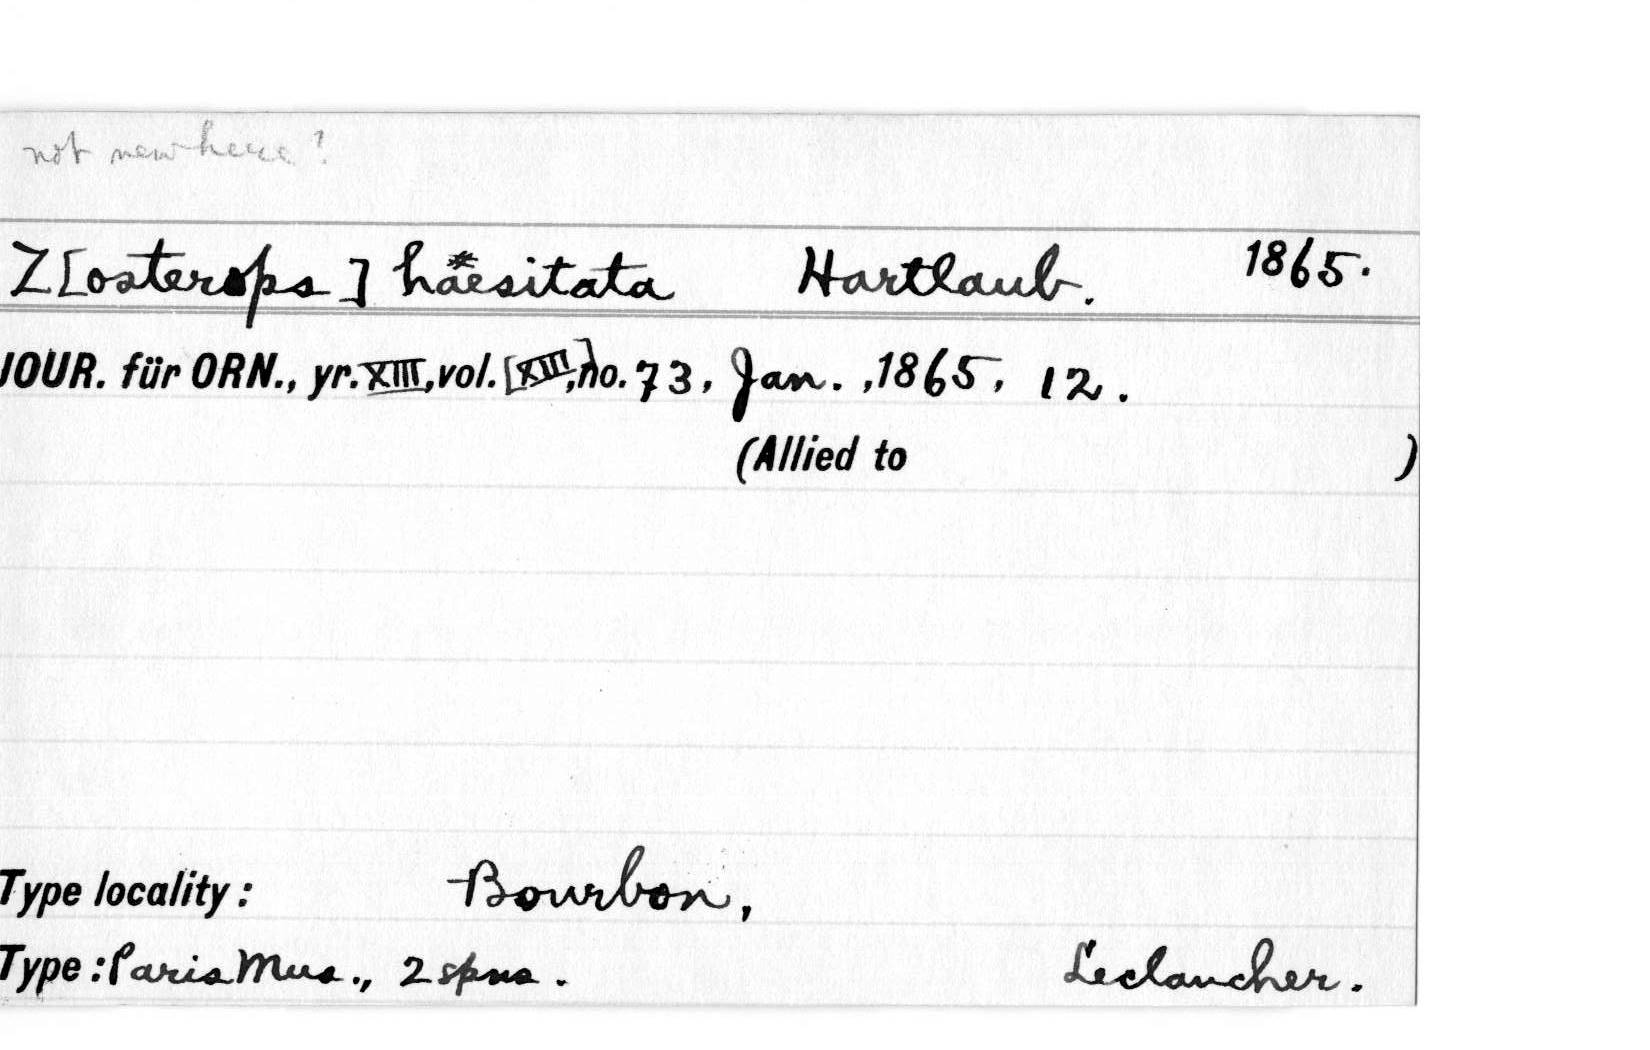 not new here?
Z[osterops] haesitata* Hartlaub. 1865.
JOUR. für ORN., yr. XIII, vol. [XIII], no. 73, Jan. , 1865, 12.
(Allied to )
Type locality: Bourbon,
Type: Paris Mus., 2 spns. Leclancher.